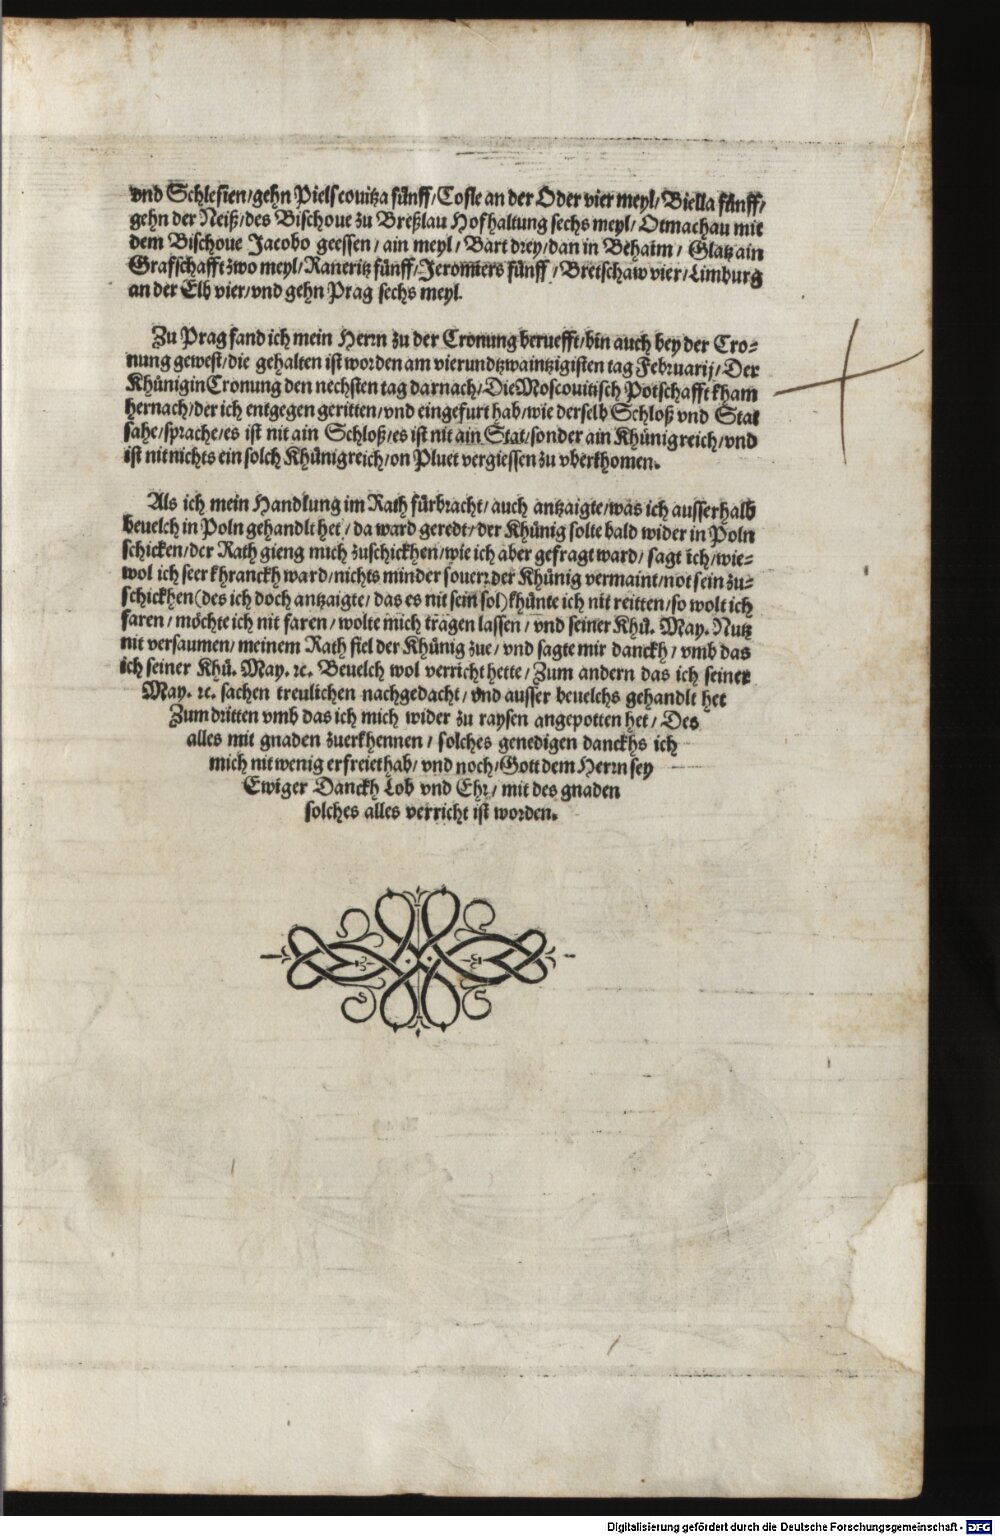 vnd Schlesien/gehn Pielscouitza fünff/Cosle an der Oder vier meyl/Biella fünff/
gehn der Neiß/des Bischoue zu Breßlau Hofhaltung sechs meyl/Otmachau mit
dem Bischoue Jacobo geessen/ain meyl/Bart drey/dan in Behaim/Glatz ain
Grafschafft zwo meyl/Raneritz fünff/Jeromiers fünff/Bretschaw vier/Limburg
an der Elb vier/vnd gehn Prag sechs meyl.
Zu Prag fand ich mein Herrn zu der Cronung beruefft/bin auch bey der Cro-
nung gewest/die gehalten ist worden am vierundtzwaintzigisten tag Februarij/Der
Khünigin Cronung den nechsten tag darnach/Die Moscouitisch Potschafft kham
hernach/der ich entgegen geritten/vnd eingefurt hab/wie derselb Schloß vnd Stat
sahe/sprache/es ist nit ain Schloß/es ist nit ain Stat/sonder ain Khünigreich/vnd
ist nit nichts ein solch Khünigreich/on Pluet vergiessen zu vberkhomen.
Als ich mein Handlung im Rath fürbracht/auch antzaigte/was ich ausserhalb
beuelch in Poln gehandlt het/da ward geredt/der Khünig solte bald wider in Poln
schicken/der Rath gieng mich zuschickhen/wie ich aber gefragt ward/sagt ich/wie-
wol ich seer khranckh ward/nichts minder souerr der Khünig vermaint/not sein zu-
schickhen(des ich doch antzaigte/das es nit sein sol)khünte ich nit reitten/so wolt ich
faren/möchte ich nit faren/wolte mich tragen lassen/vnd seiner Khü. May. Nutz
nit versaumen/meinem Rath fiel der Khünig zue/vnd sagte mir danckh/vmb das
ich seiner Khü. May. ꝛc. Beuelch wol verricht hette/Zum andern das ich seiner
May. ꝛc. sachen treulichen nachgedacht/vnd ausser beuelchs gehandlt het
Zum dritten vmb das ich mich wider zu raysen angepotten het/Des
alles mit gnaden zuerkhennen/solches genedigen danckhs ich
mich nit wenig erfreiet hab/vnd noch/Gott dem Herrn sey
Ewiger Danckh Lob vnd Ehr/mit des gnaden
solches alles verricht ist worden.
Digitalisierung gefördert durch die Deutsche Forschungsgemeinschaft - DFG